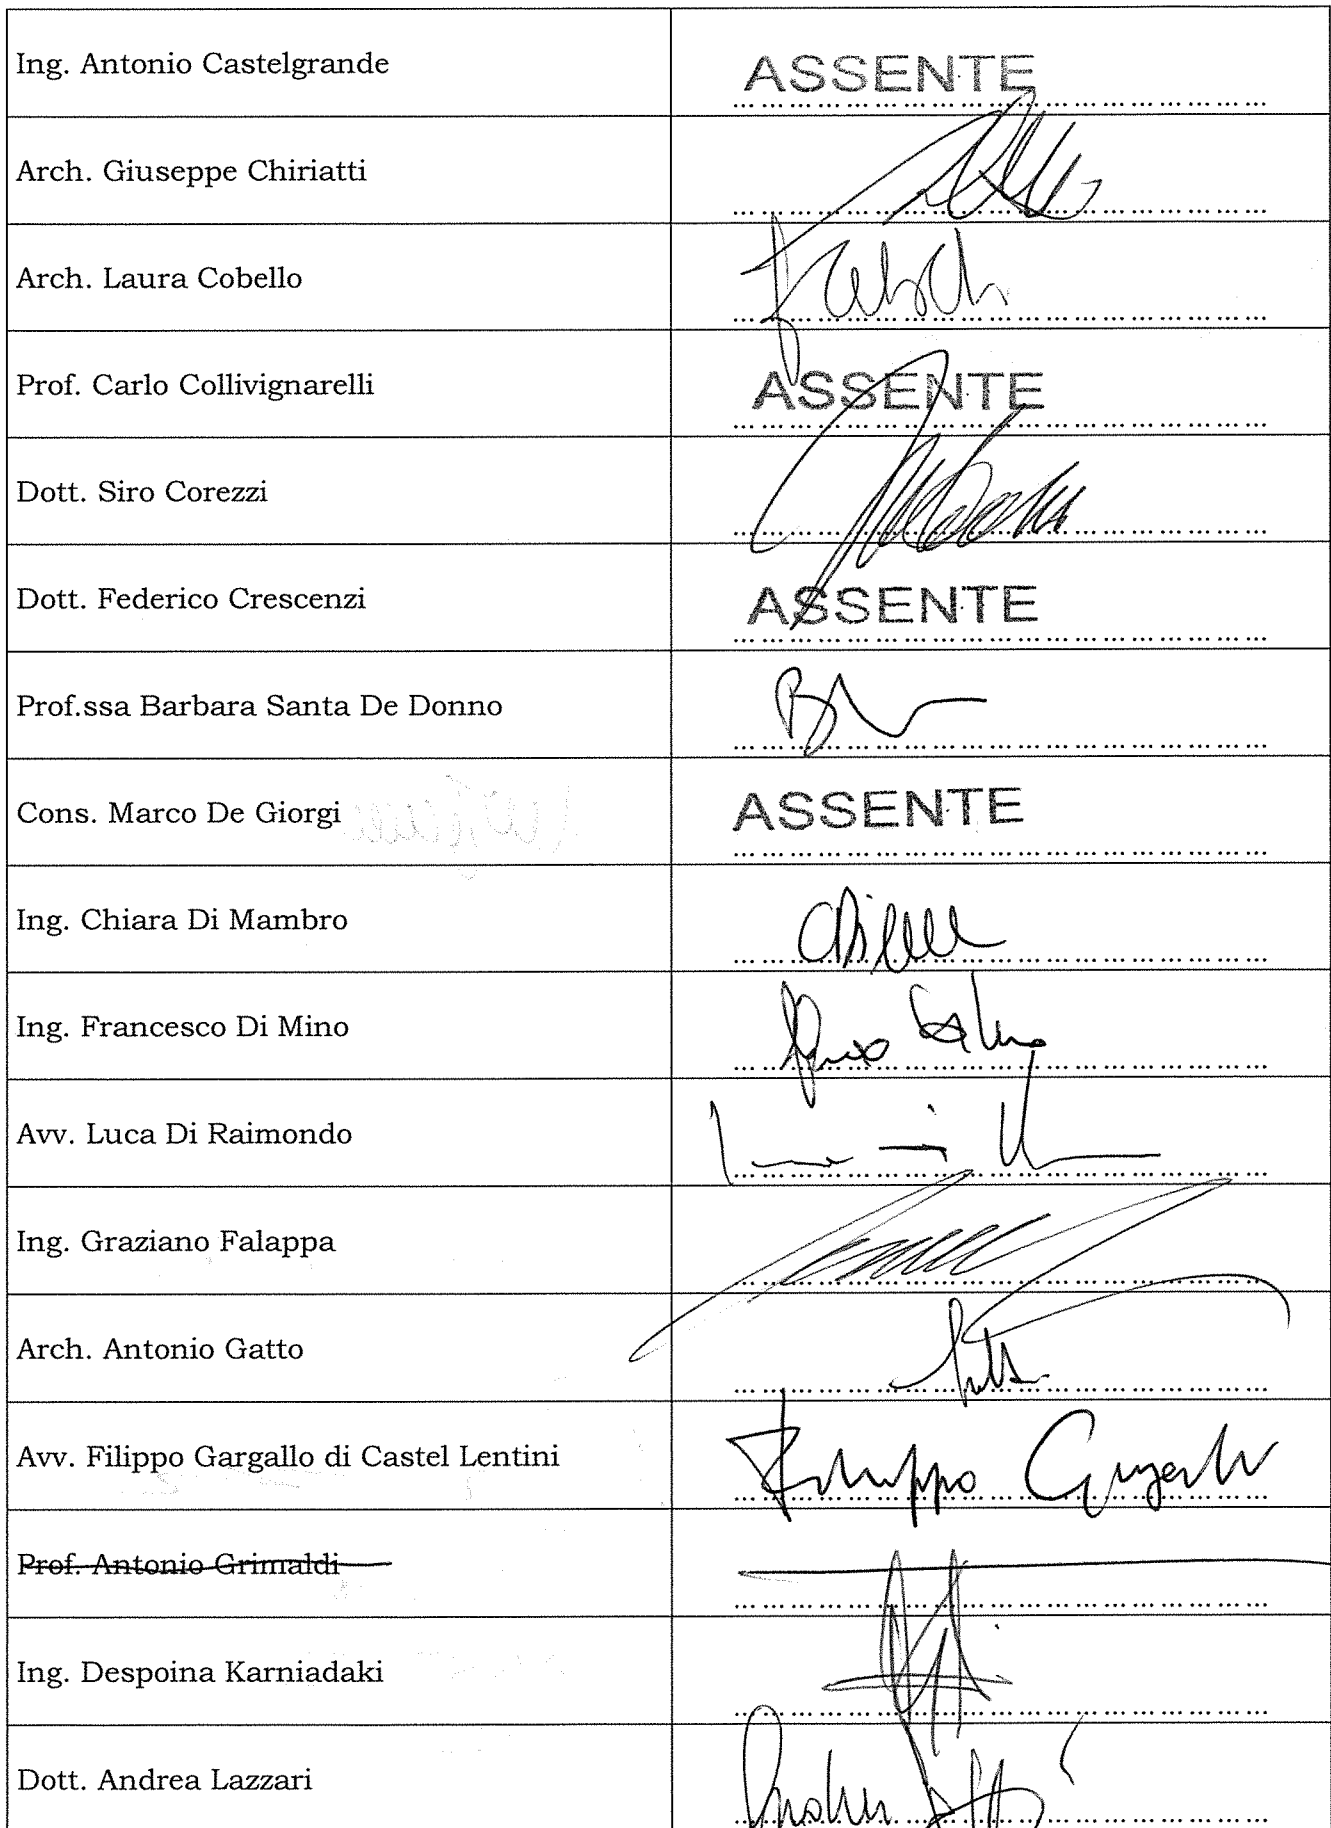 Ing. Antonio Castelgrande ASSENTE
Arch. Giuseppe Chiriatti
Arch. Laura Cobello
Prof. Carlo Collivignarelli ASSENTE
Dott. Siro Corezzi
Dott. Federico Crescenzi ASSENTE
Prof.ssa Barbara Santa De Donno
Cons. Marco De Giorgi ASSENTE
Ing. Chiara Di Mambro
Ing. Francesco Di Mino
Avv. Luca Di Raimondo
Ing. Graziano Falappa
Arch. Antonio Gatto
Avv. Filippo Gargallo di Castel Lentini Filippo
Prof. Antonio Grimaldi
Ing. Despoina Karniadaki
Dott. Andrea Lazzari